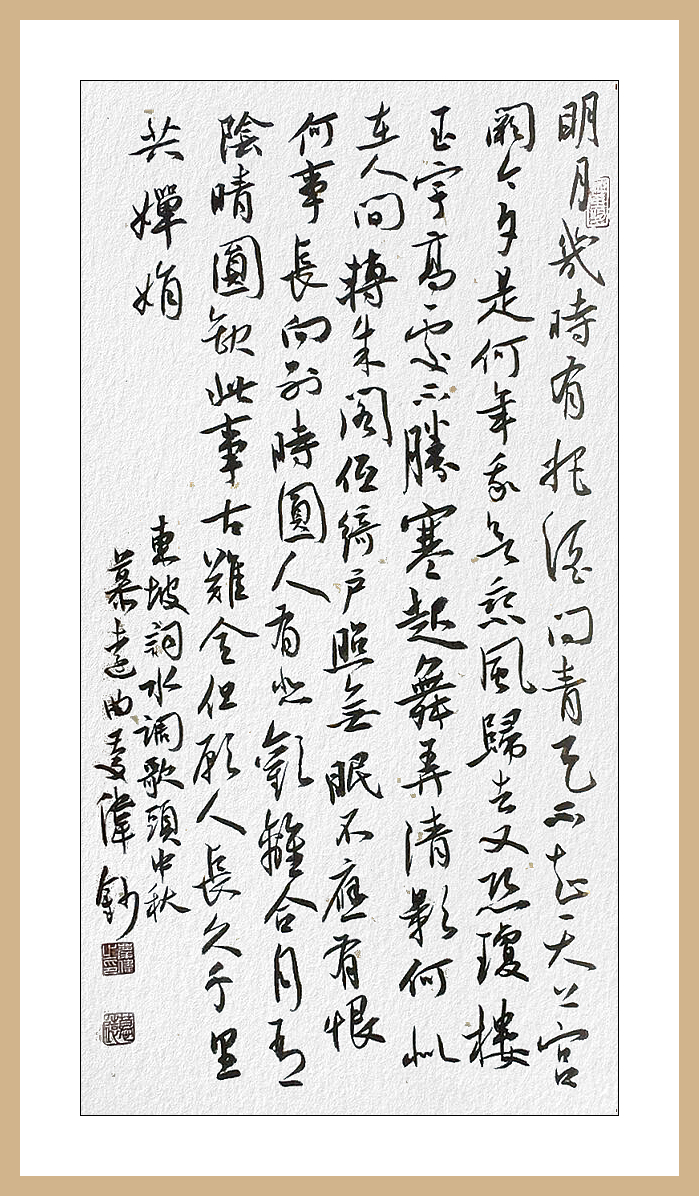 明月幾時有把酒問青天不知天上宮
闕今夕是何年我欲乘風歸去又恐瓊樓
玉宇高處不勝寒起舞弄清影何似
在人間轉朱閣低綺戶照無眠不應有恨
何事長向別時圓人有悲歡離合月有
陰晴圓缺此事古難全但願人長久千里
共嬋娟
東坡詞水調歌頭中秋
慕遠曲偉鈔